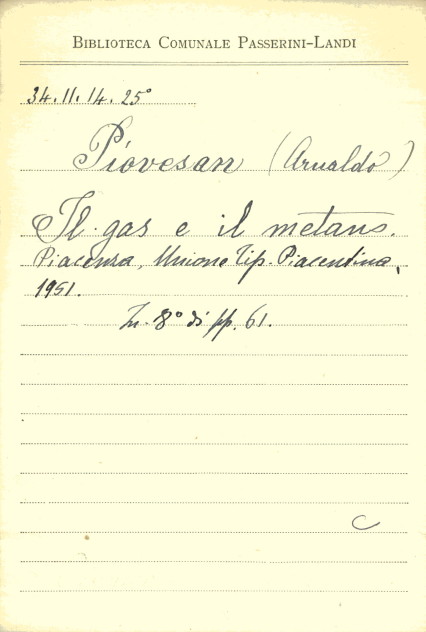 BIBLIOTECA COMUNALE PASSERINI-LANDI
34.11.14.25°
Piovesan (Arnaldo)
Il gas e il metano.
Piacenza, Unione Tip. Piacentina,
1951.
In. 8° di pp. 61.
C